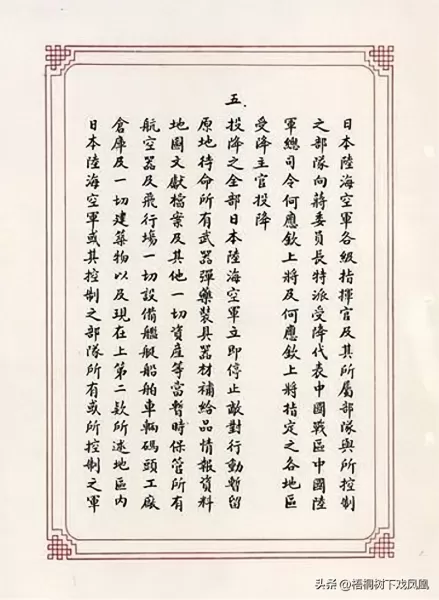 日本陸海空軍各級指揮官及其所屬部隊與所控制
之部隊向蔣委員長特派受降代表中國戰區中國陸
軍總司令何應欽上將及何應欽上將指定之各地區
受降主官投降
五.
投降之全部日本陸海空軍立即停止敵對行動暫留
原地待命所有武器彈藥裝具器材補給品情報資料
地圖文獻檔案及其他一切資產等當暫時保管所有
航空器及飛行場一切設備艦艇船舶車輛碼頭工廠
倉庫及一切建築物以及現在上第二款所述地區內
日本陸海空軍或其控制之部隊所有或所控制之軍
头条@梧桐树下戏凤凰